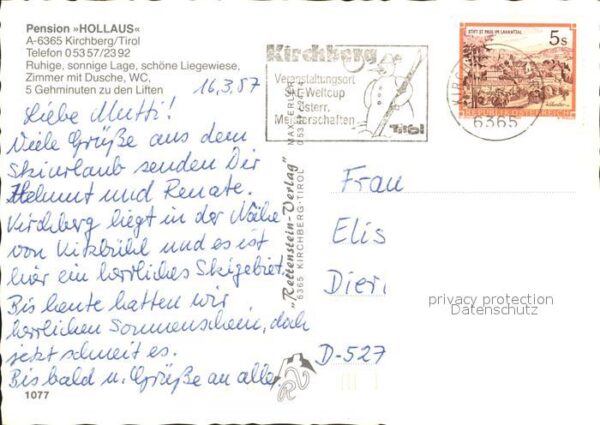 Pension »HOLLAUS«
A-6365 Kirchberg/Tirol
Telefon 0 53 57/23 92
Ruhige, sonnige Lage, schöne Liegewiese,
Zimmer mit Dusche, WC,
5 Gehminuten zu den Liften
16.3.87
Liebe Mutti!
Viele Grüße aus dem
Skiurlaub senden Dir
Helmut und Renate.
Kirchberg liegt in der Nähe
von Kitzbühl und es ist
hier ein herrliches Skigebiet.
Bis heute hatten wir
herrlichen Sonnenschein, doch
jetzt schneit es.
Bis bald u. Grüße an alle.
1077
Kirchberg
Veranstaltungsort
Ski-Weltcup
Österr.
Meisterschaften
Tirol
STIFT ST. PAUL IM LAVANTTAL
5s
REPUBLIK ÖSTERREICH
6365
"Rettenstein-Verlag"
6365 KIRCHBERG-TIROL
Frau
Elis
Dier
privacy protection
Datenschutz
D-527
RV